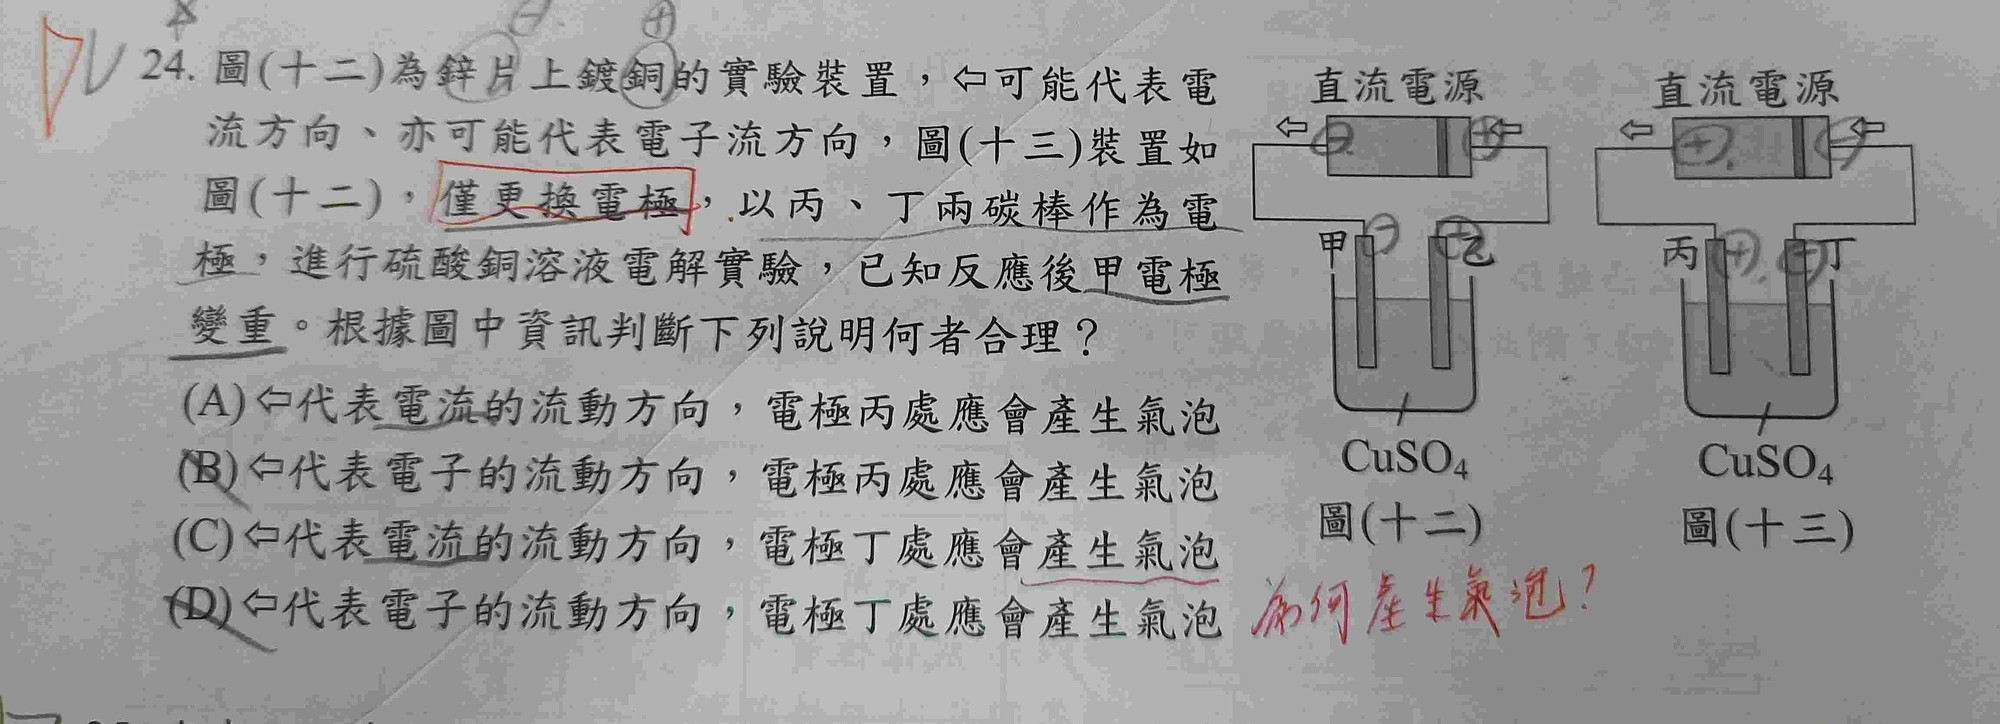 24. 圖(十二)為鋅片上鍍銅的實驗裝置，⇦可能代表電
流方向、亦可能代表電子流方向，圖(十三)裝置如
圖(十二)，僅更換電極，以丙、丁兩碳棒作為電
極，進行硫酸銅溶液電解實驗，已知反應後甲電極
變重。根據圖中資訊判斷下列說明何者合理？
(A)⇦代表電流的流動方向，電極丙處應會產生氣泡
(B)⇦代表電子的流動方向，電極丙處應會產生氣泡
(C)⇦代表電流的流動方向，電極丁處應會產生氣泡
(D)⇦代表電子的流動方向，電極丁處應會產生氣泡
直流電源
⇦ - + ⇦
甲 - + 乙
CuSO4
圖(十二)
直流電源
⇦ + - ⇦
丙 + - 丁
CuSO4
圖(十三)
為何產生氣泡?